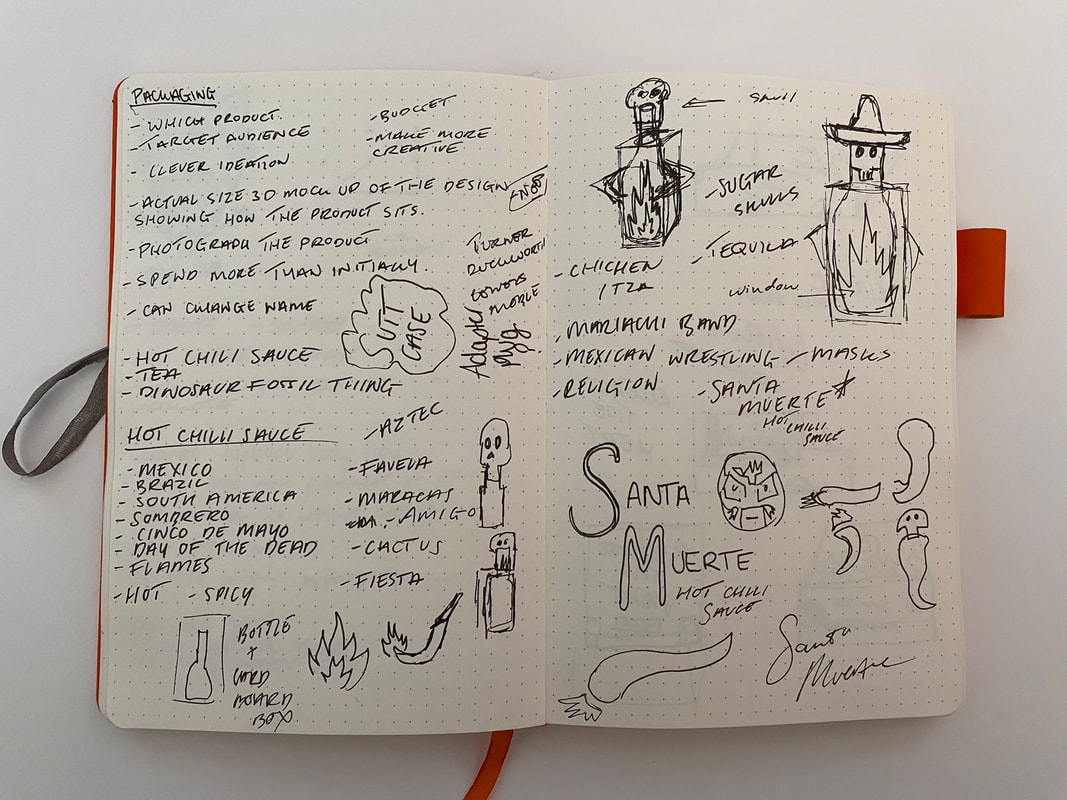 PACKAGING
- WHICH PRODUCT.
- TARGET AUDIENCE
- CLEVER IDEATION
- BUDGET
- MAKE MORE
CREATIVE
- ACTUAL SIZE 3D MOCK UP OF THE DESIGN
SHOWING HOW THE PRODUCT SITS.
- PHOTOGRAPH THE PRODUCT
- SPEND MORE THAN INITIALLY.
- CAN CHANGE NAME
SUIT
CASE
TURNER
DUCKWORTH
MOBLE
Adapter
- HOT CHILI SAUCE
- TEA
- DINOSAUR FOSSIL THING
HOT CHILLI SAUCE
- MEXICO
- BRAZIL
- SOUTH AMERICA
- SOMBRERO
- CINCO DE MAYO
- DAY OF THE DEAD
- FLAMES
- HOT - SPICY
- AZTEC
- FAVELA
- MARACAS
- AMIGO
- CACTUS
- FIESTA
BOTTLE
+
CARD
BOARD
BOX.
SKULL
- SUGAR
SKULLS
- TEQUILA
window
- CHICHEN
ITZA
- MARIACHI BAND
- MEXICAN WRESTLING / MASKS
- RELIGION
- SANTA
MUERTE*
HOT
CHILLI
SAUCE
SANTA
MUERTE
HOT CHILI
SAUCE
Santa
Muerte